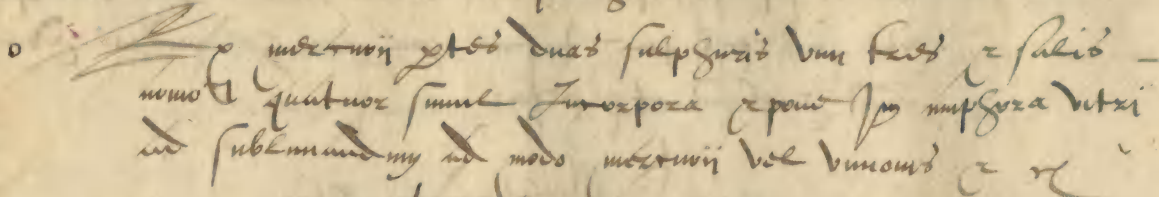 o Rx mercurii ptes duas sulphuris vivi tres et salis
quatuor simul Incorpora et pone In amphora vitri
ad sublimandum ad modo mercurii vel et